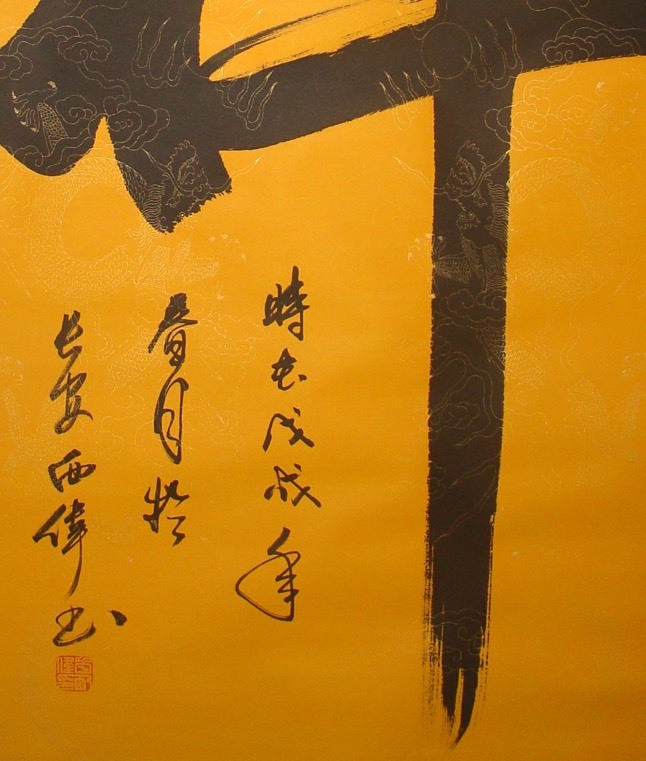 時在戊戌年
春月於
長安西偉书